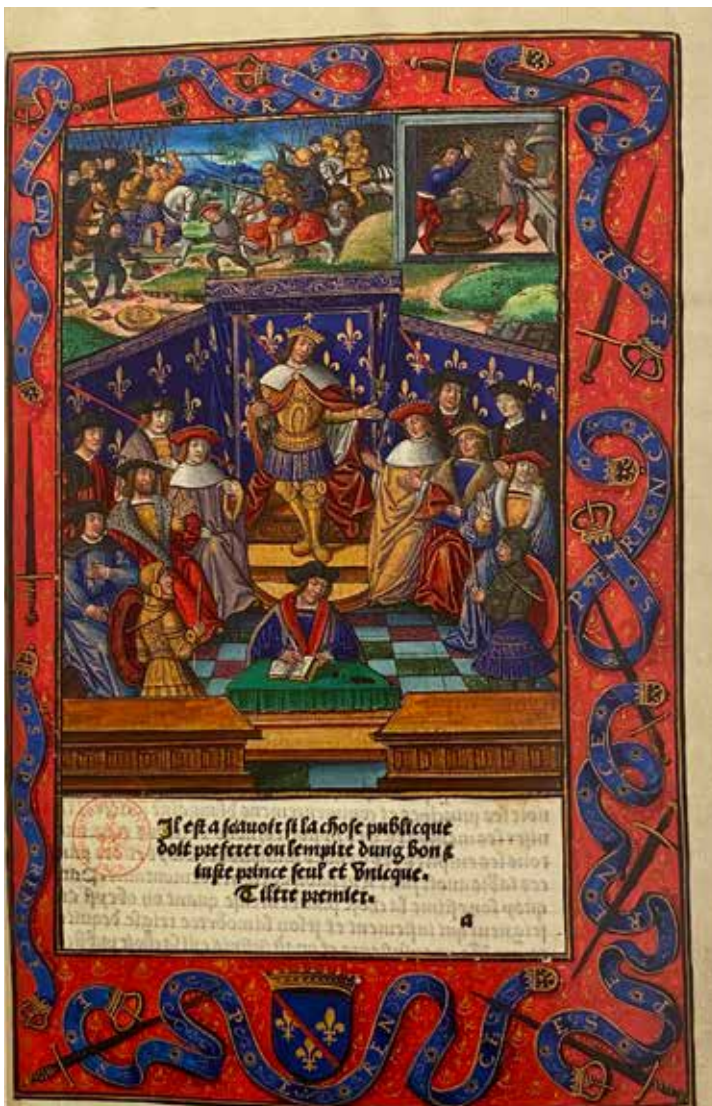 ESPERENCE
ESPERENCE
ESPERENCE
Il est a scauoir si la chose publicque
doit preferer ou lempire dung bon &
iuste prince seul et vnicque.
Tiltre premier.
a
ESPERENCE